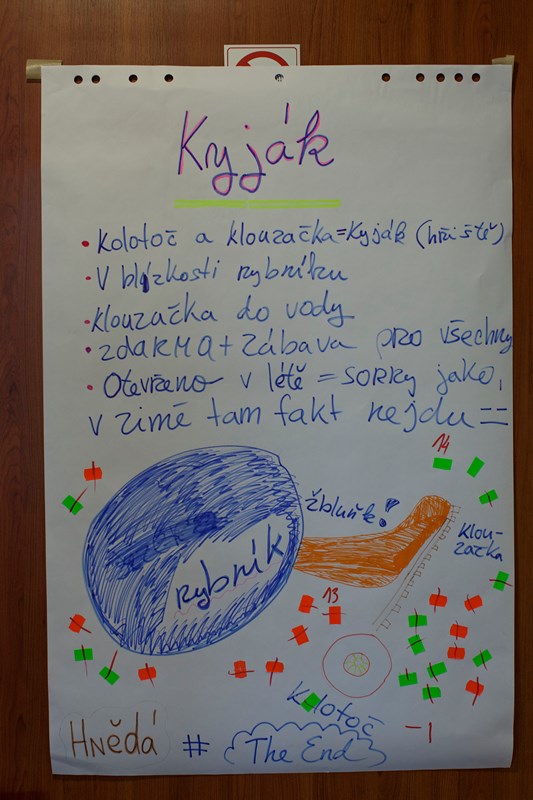 Kyják
• Kolotoč a klouzačka=Kyják (hřiště)
• V blízkosti rybníku
• klouzačka do vody
• zdaRMa + zábava pro všechny
• Otevřeno v létě = SORRY jako,
v zimě tam fakt nejdu =
14
žbluňk!
klou-
začka
rybník
13
Kolotoč
-1
Hnědá # The End